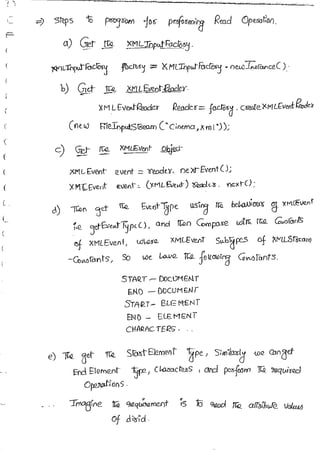 =) Steps to program for performing Read Operation.
a) Get the XMLInputFactory.
XMLInputFactory factory = XMLInputFactory.newInstance();
b) Get the XMLEventReader.
XMLEventReader reader = factory.createXMLEventReader
(new FileInputStream ("cinema.xml"));
c) Get the XMLEvent Object
XMLEvent event = reader.nextEvent();
XMLEvent event = (XMLEvent) reader.next();
d) Then get the Event Type using the behaviour of XMLEvent
i.e getEventType(), and then Compare with the Constants
of XMLEvent, where XMLEvent Subtypes of XMLStream
-Constants, So we have the following Constants.
START - DOCUMENT
END - DOCUMENT
START - ELEMENT
END - ELEMENT
CHARACTERS - - .
e) The get the StartElement type, Similarly we can get
End Element type, characters, and perform the required
Operations.
Imagine the requirement is to read the attribute values
of